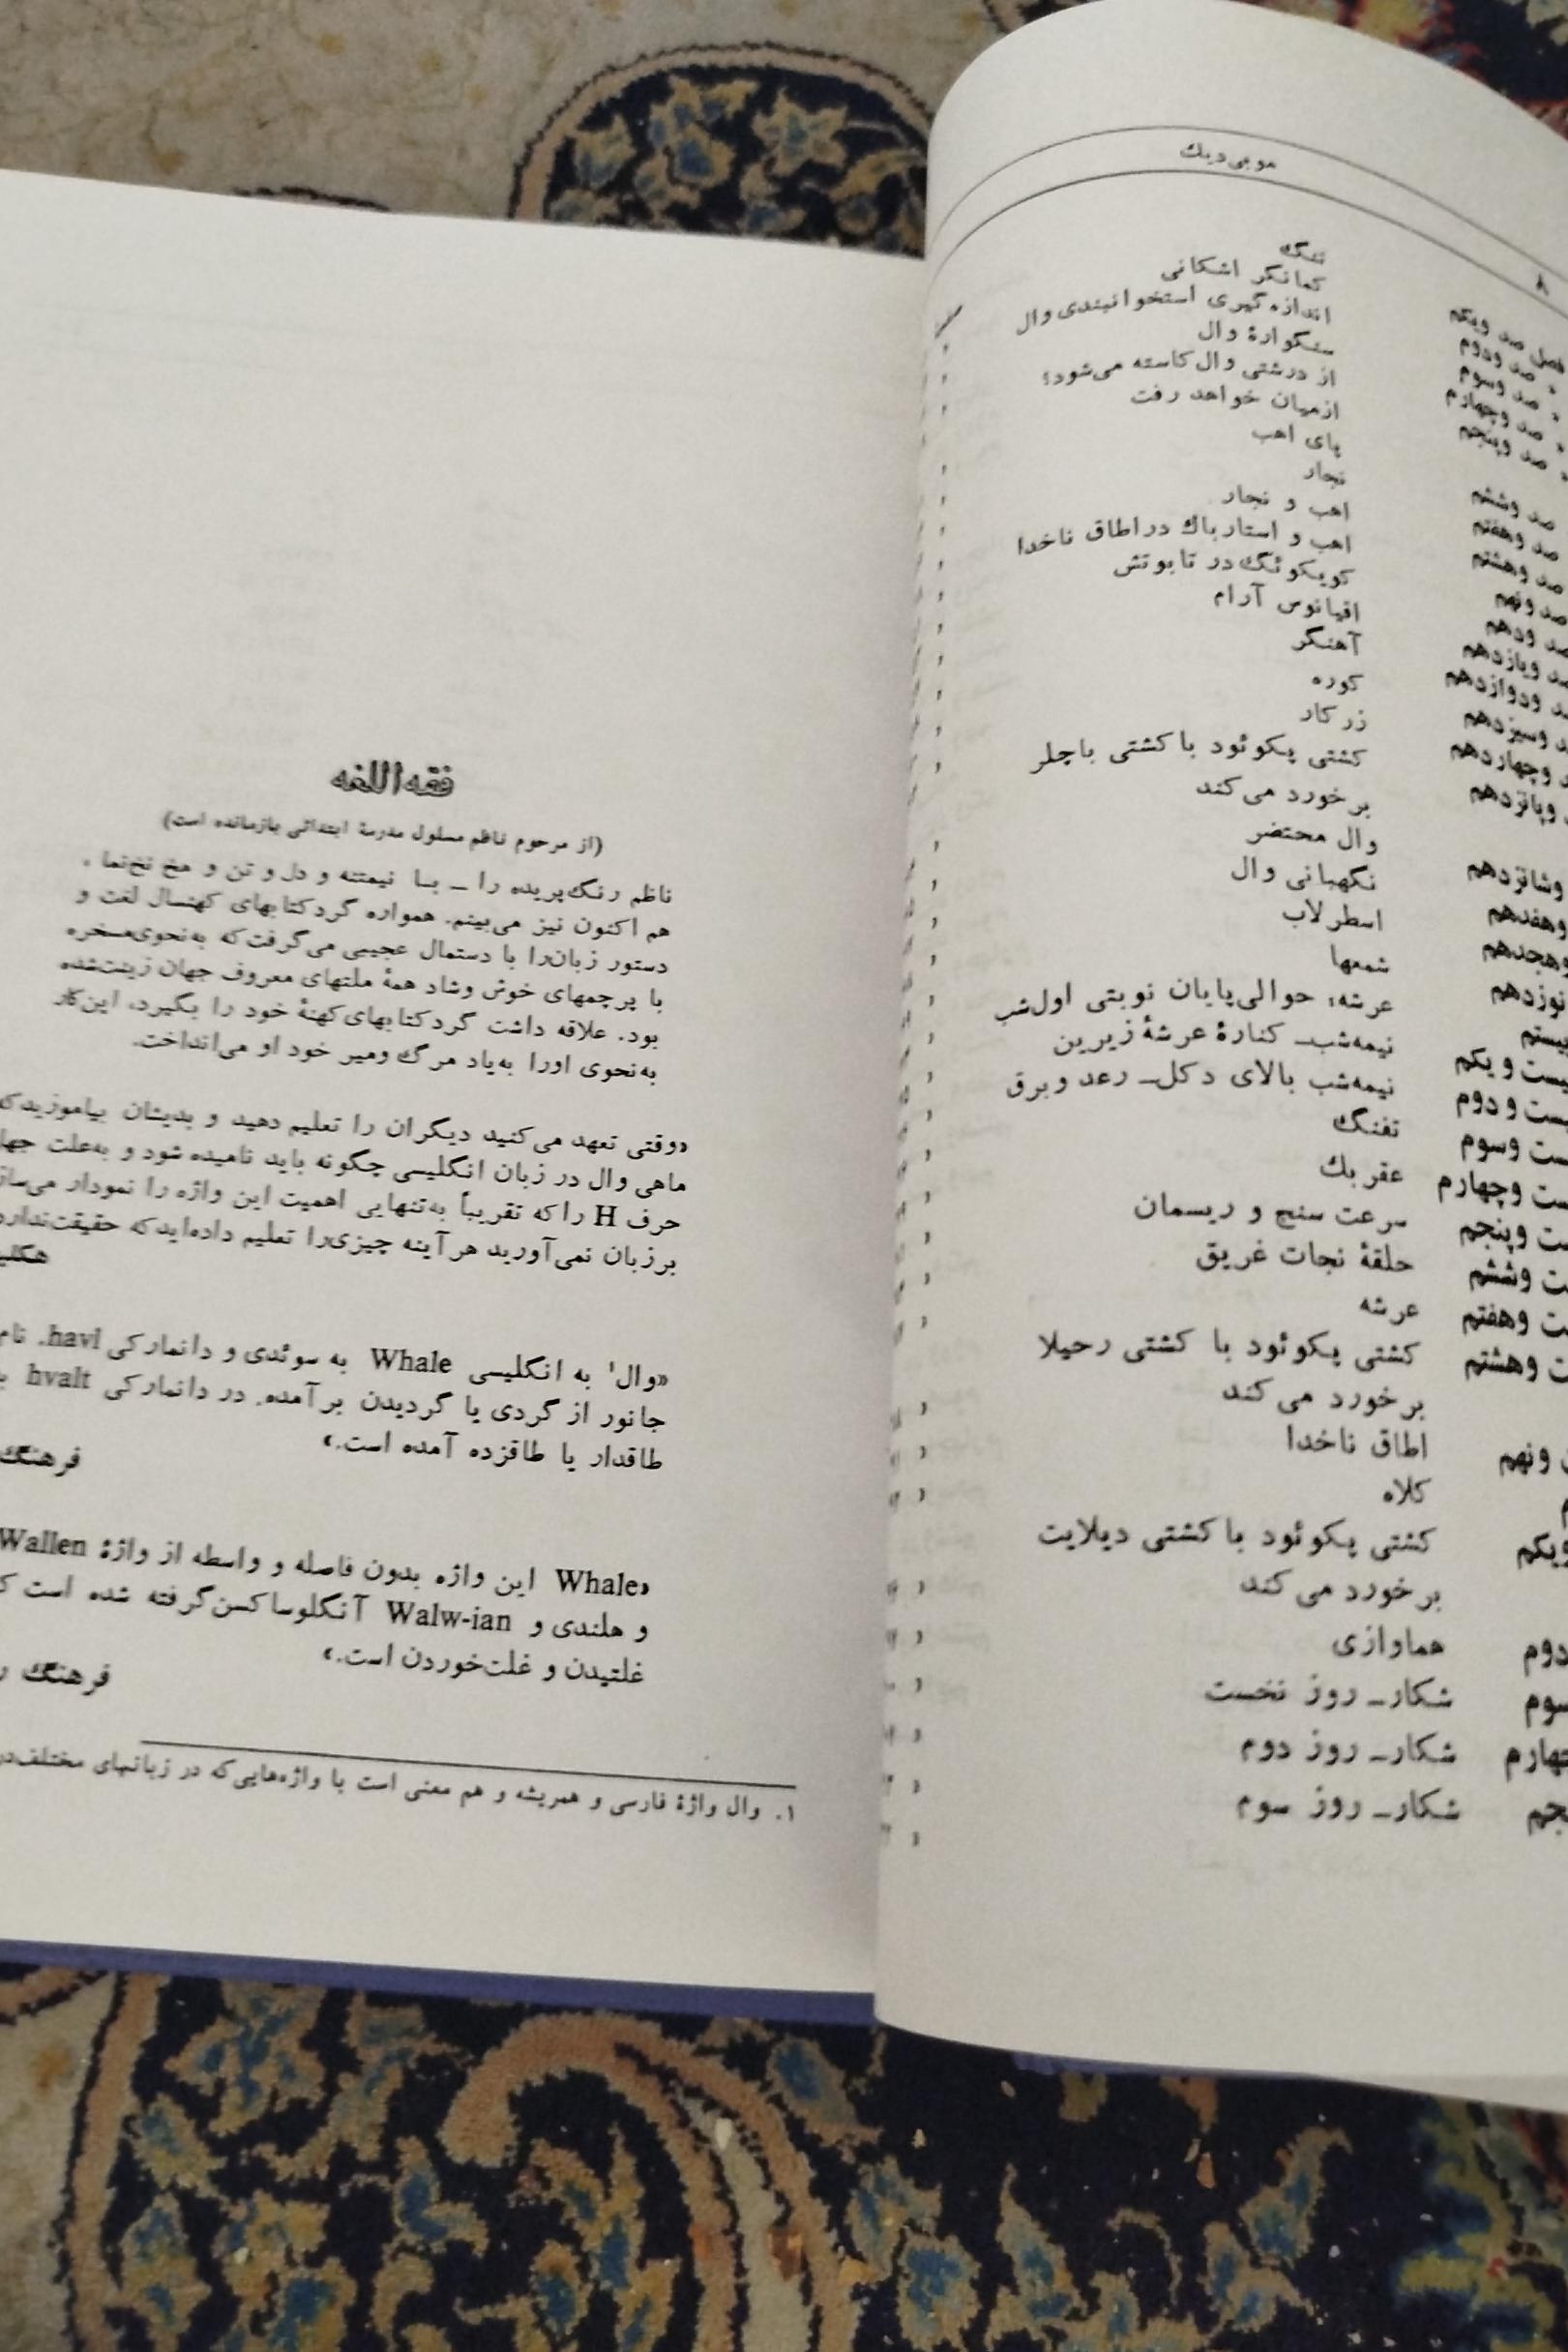 موبی دیک
۸
تنگ
فصل صد ویکم
کمانگر اشکانی
صد ودوم
اندازه گیری استخوانبندی وال
صد وسوم
سنگوارهٔ وال
صد وچهارم
از درشتی وال کاسته می‌شود؛
صد وپنجم
ازمیان خواهد رفت
پای اهب
صد وششم
نجار
صد وهفتم
اهب و نجار
صد وهشتم
اهب و استارباک در اطاق ناخدا
صد ونهم
کویکوئگ در تابوتش
صد ودهم
اقیانوس آرام
صد ویازدهم
آهنگر
ودوازدهم
کوره
وسیزدهم
زرکار
وچهاردهم
کشتی پکوئود با کشتی باچلر
وپانزدهم
برخورد می‌کند
وال محتضر
وشانزدهم
نگهبانی وال
وهفدهم
اسطرلاب
وهجدهم
شمعها
نوزدهم
عرشه؛ حوالی پایان نوبتی اول شب
بیستم
نیمه‌شب ـ کنارهٔ عرشهٔ زیرین
یست و یکم
نیمه‌شب بالای دکل ـ رعد وبرق
یست و دوم
تفنگ
ست وسوم
عقربک
ست وچهارم
سرعت سنج و ریسمان
ت وپنجم
حلقهٔ نجات غریق
ت وششم
عرشه
ت وهفتم
کشتی پکوئود با کشتی رحیلا
ت وهشتم
برخورد می‌کند
اطاق ناخدا
ونهم
کلاه
کشتی پکوئود با کشتی دیلایت
ویکم
برخورد می کند
هماوازی
دوم
شکار ـ روز نخست
سوم
شکار ـ روز دوم
چهارم
شکار ـ روز سوم
نجم
فقه‌اللغه
(از مرحوم ناظم مسلول مدرسهٔ ابتدائی بازمانده است)
ناظم رنگ‌پریده را ـ با نیمتنه و دل و تن و مخ نخ‌نما ،
هم اکنون نیز می‌بینم. همواره گرد کتابهای کهنسال لغت و
دستور زبان‌را با دستمال عجیبی می‌گرفت که به‌نحوی مسخره
با پرچمهای خوش وشاد همهٔ ملتهای معروف جهان زینت‌شده
بود. علاقه داشت گرد کتابهای کهنهٔ خود را بگیرد، این‌کار
به‌نحوی اورا به‌یاد مرگ ومیر خود او می‌انداخت.
«وقتی تعهد می‌کنید دیگران را تعلیم دهید و بدیشان بیاموزید که
ماهی وال در زبان انگلیسی چگونه باید نامیده شود و به‌علت
حرف H را که تقریباً به‌تنهایی اهمیت این واژه را نمودار
برزبان نمی‌آورید هرآینه چیزی‌را تعلیم داده‌اید که حقیقت‌ندارد
«وال۱ به انگلیسی Whale به سوئدی و دانمارکی havl. نام
جانور از گردی یا گردیدن برآمده. در دانمارکی hvalt
طاقدار یا طاقزده آمده است.»
فرهنگ
«Whale این واژه بدون فاصله و واسطه از واژهٔ Wallen
و هلندی و Walw-ian آنگلوساکسن‌گرفته شده است
غلتیدن و غلت‌خوردن است.»
فرهنگ
۱. وال واژهٔ فارسی و همریشه و هم معنی است با واژه‌هایی‌که در زبانهای مختلف